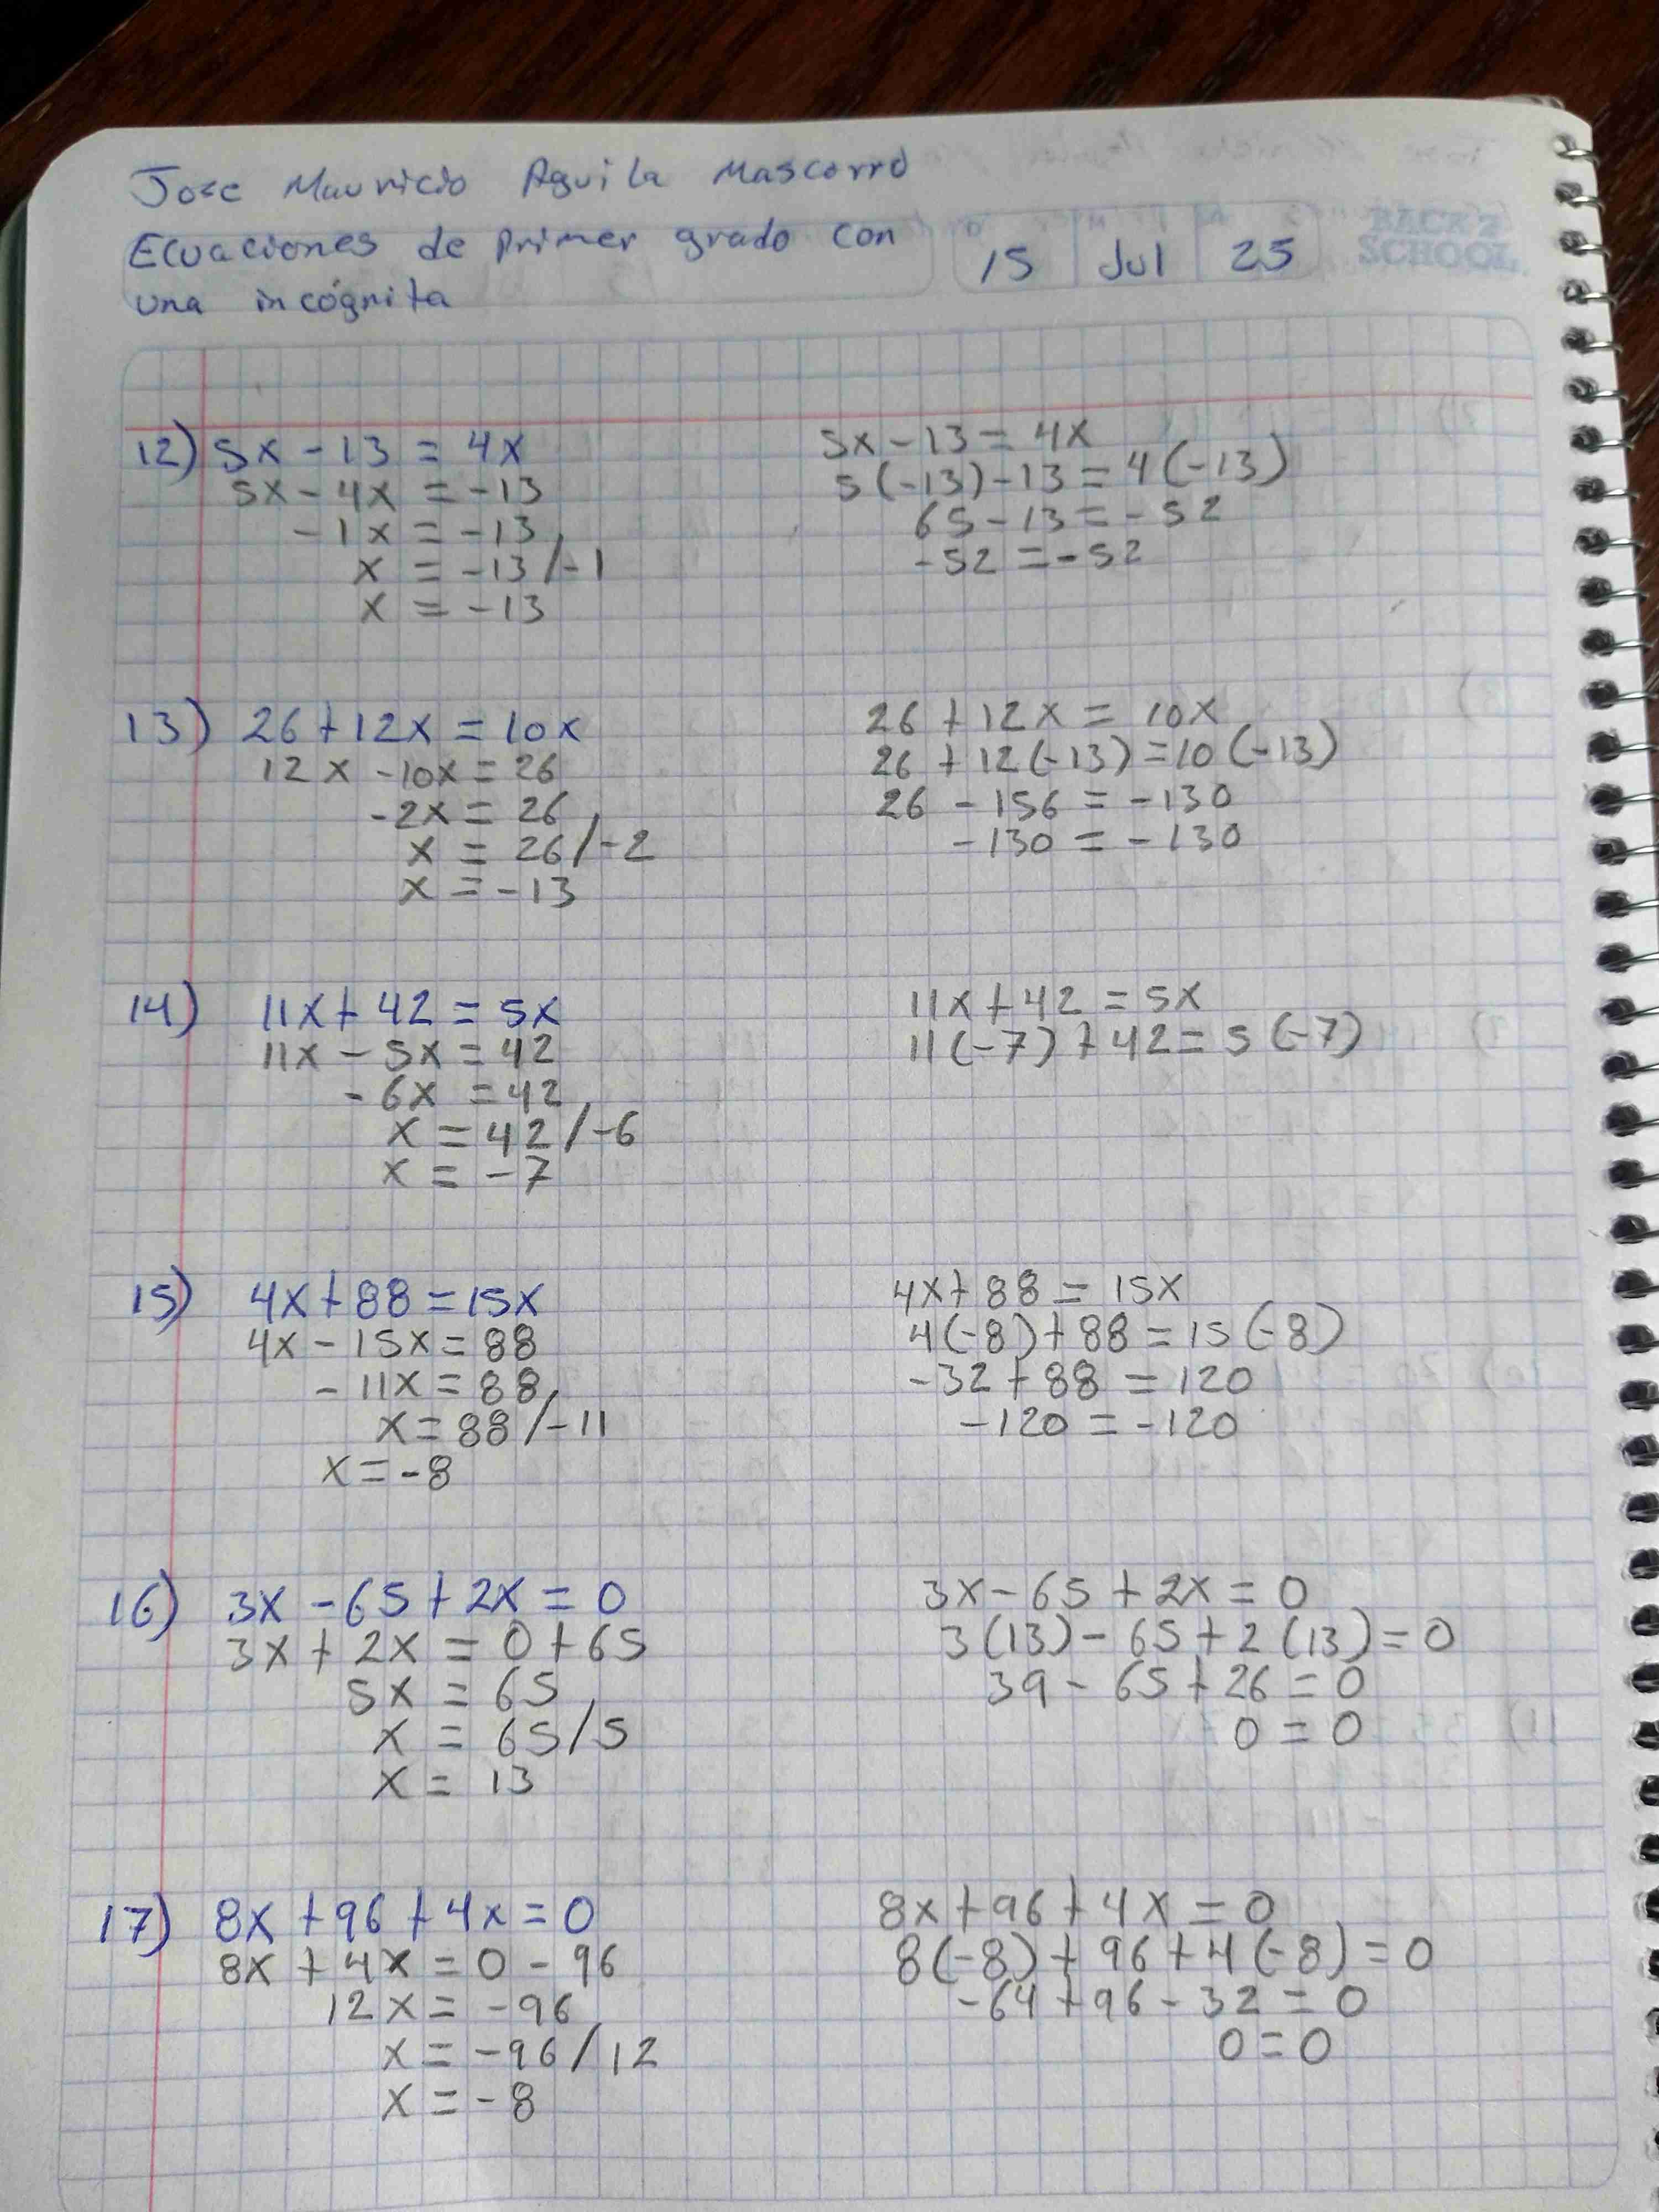 Jose Mauricio Aguila Mascorro
Ecuaciones de primer grado con
una incógnita
15 Jul 25
BACK 2
SCHOOL
12) 5x - 13 = 4x
5x - 4x = -13
-1x = -13
x = -13/-1
x = -13
5x - 13 = 4x
5(-13) - 13 = 4(-13)
65 - 13 = -52
-52 = -52
13) 26 + 12x = 10x
12x - 10x = 26
-2x = 26
x = 26/-2
x = -13
26 + 12x = 10x
26 + 12(-13) = 10(-13)
26 - 156 = -130
-130 = -130
14) 11x + 42 = 5x
11x - 5x = 42
-6x = 42
x = 42/-6
x = -7
11x + 42 = 5x
11(-7) + 42 = 5(-7)
15) 4x + 88 = 15x
4x - 15x = 88
-11x = 88
x = 88/-11
x = -8
4x + 88 = 15x
4(-8) + 88 = 15(-8)
-32 + 88 = 120
-120 = -120
16) 3x - 65 + 2x = 0
3x + 2x = 0 + 65
5x = 65
x = 65/5
x = 13
3x - 65 + 2x = 0
3(13) - 65 + 2(13) = 0
39 - 65 + 26 = 0
0 = 0
17) 8x + 96 + 4x = 0
8x + 4x = 0 - 96
12x = -96
x = -96/12
x = -8
8x + 96 + 4x = 0
8(-8) + 96 + 4(-8) = 0
-64 + 96 - 32 = 0
0 = 0